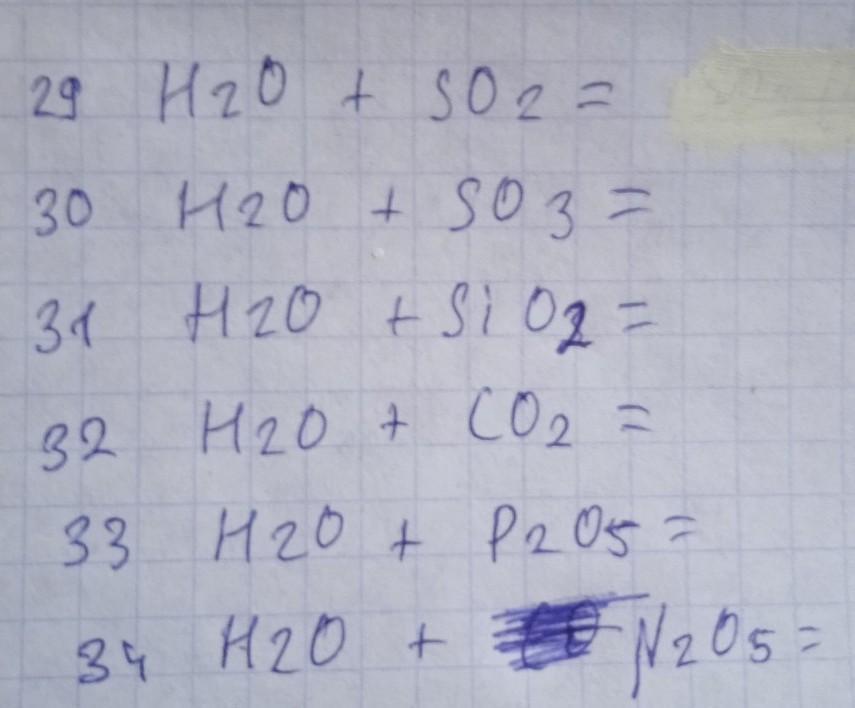 29 H2O + SO2 =
30 H2O + SO3 =
31 H2O + SiO2 =
32 H2O + CO2 =
33 H2O + P2O5 =
34 H2O + N2O5 =